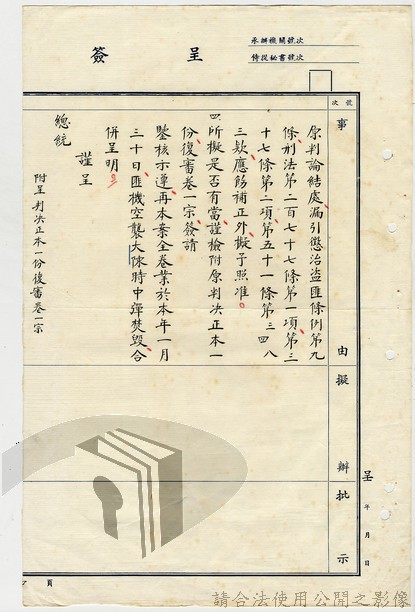 簽呈
承辦機關號次
侍從秘書號次
號次
事由擬辦批示
原判論結處漏引懲治盜匪條例第九
條刑法第二百七十七條第一項第三
十七條第二項第五十一條第三四八
三欵應飭補正外擬予照准。
四所擬是否有當謹檢附原判決正本一
份復審卷一宗簽請
鑒核示遵再本案全卷業於本年一月
三十日匪機空襲大陳時中彈焚毀合
併呈明
謹呈
總統
附呈判決正本一份復審卷一宗
呈 年 月 日
頁
請合法使用公開之影像